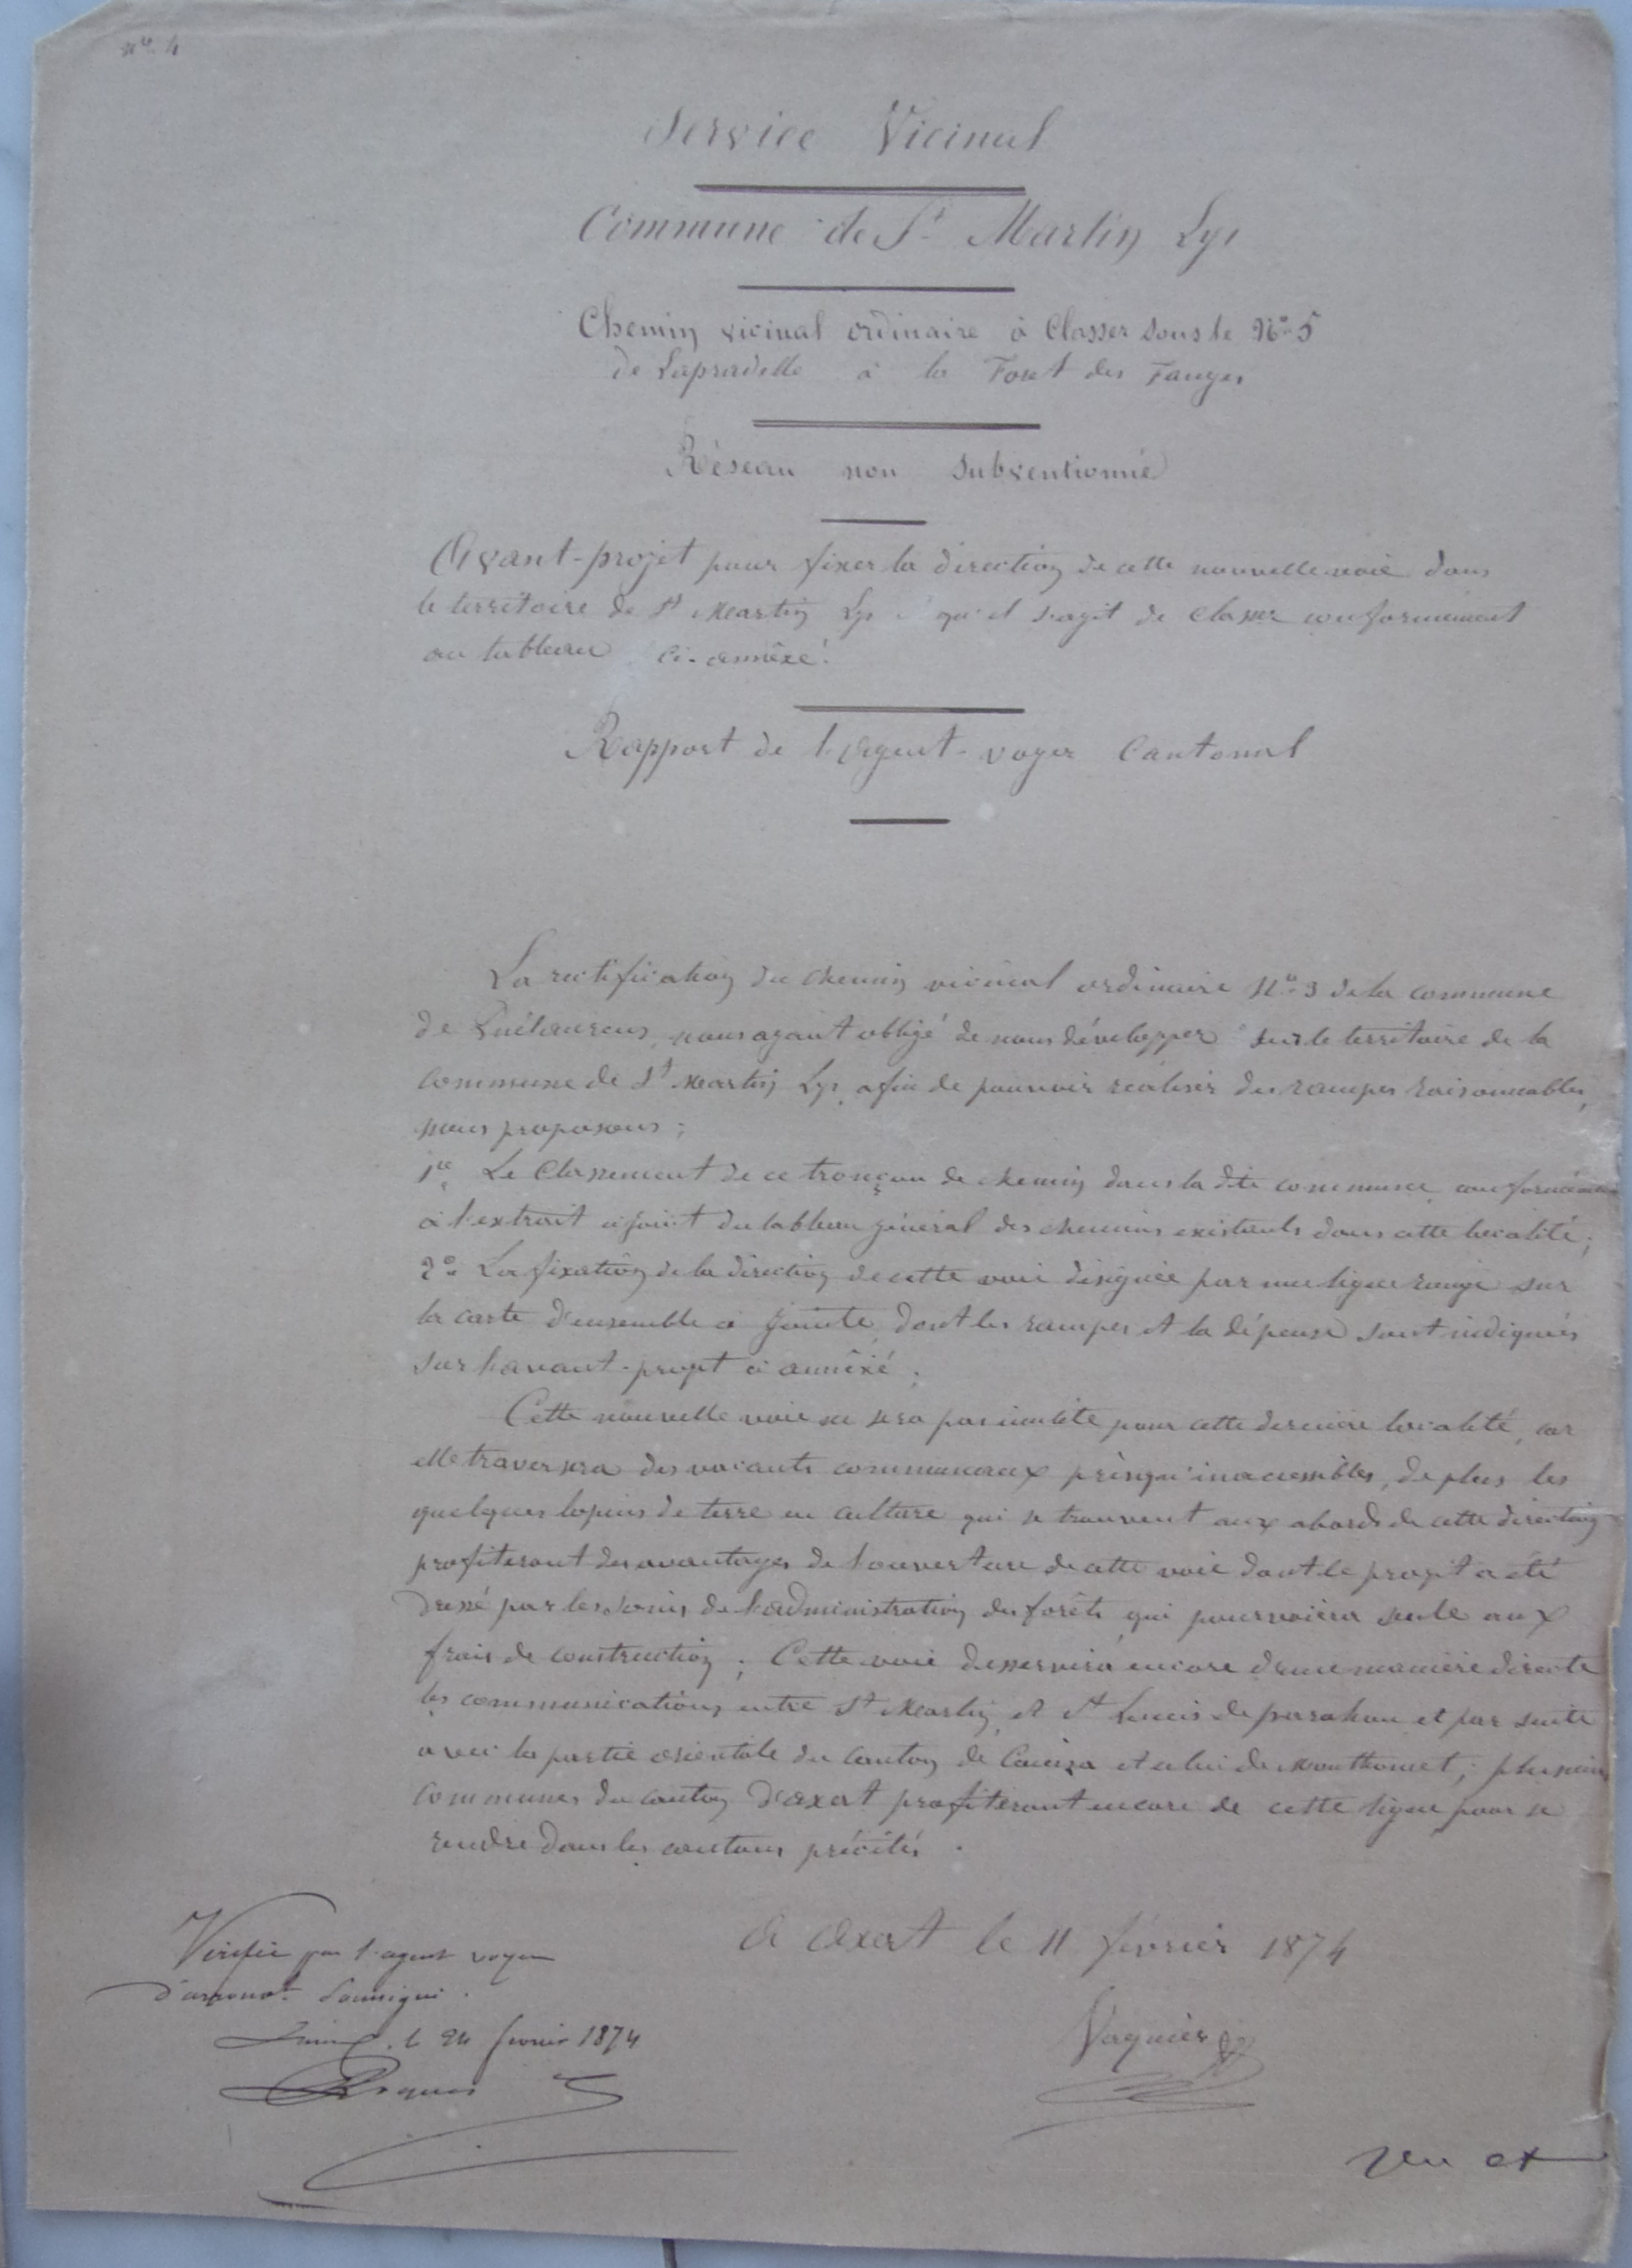 N° 4
Service Vicinal
Commune de St Martin Lys
Chemin vicinal ordinaire à Classer sous le N° 5
de Lapradelle à la Foret des Fanges
Réseau non Subventionné
Avant-projet pour fixer la direction de cette nouvelle voie dans
le territoire de St Martin Lys qu'il s'agit de Classer conformément
au tableau ci-annéxé.
Rapport de l'Agent-voyer Cantonal
La rectification du chemin vicinal ordinaire N° 3 de la commune
de Puélaurens, nous ayant obligé de nous développer sur le territoire de la
Commune de St Martin Lys, afin de pouvoir réaliser des rampes raisonnables,
nous proposons ;
1° Le Classement de ce tronçon de chemin dans la dite commune, conformément
à l'extrait ci joint du tableau général des chemins existants dans cette localité ;
2° La fixation de la direction de cette voie désignée par une ligne rouge sur
la carte d'ensemble ci jointe, dont les rampes et la dépense sont indiqués
sur l'avant-projet ci annéxé ;
Cette nouvelle voie ne sera pas inutile pour cette dernière localité, car
elle traversera des vacants communaux presqu'inaccessibles, de plus les
quelques lopins de terre en culture qui se trouvent aux abords de cette direction
profiteront des avantages de l'ouverture de cette voie dont le projet a été
dressé par les soins de l'administration des forêts, qui pourvoiera seule aux
frais de construction ; Cette voie desservira encore d'une manière directe
les communications entre St Martin, et St Louis de parahou et par suite
avec la partie orientale du canton de Couiza et celui de Mouthoumet ; plusieurs
communes du canton d'axat profiteront encore de cette ligne pour se
rendre dans les cantons précités.
A Axat le 11 février 1874
Vérifié par l'agent voyer
d'arrond.t soussigné.
Limoux, le 24 fevrier 1874
Vaquier
Vu et